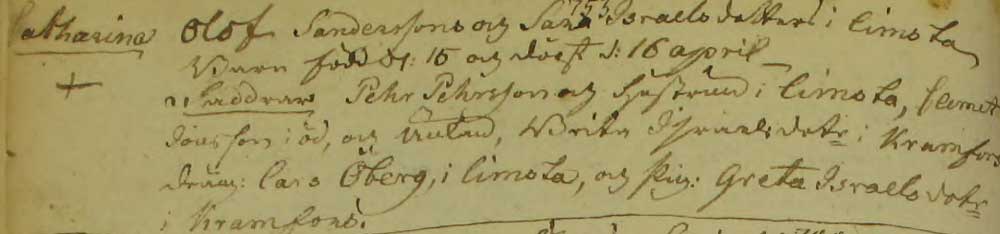 Catharina Olof Sanderssons og Sara Israels dotters i Limsta
Barn född d: 15 og döpt d: 16 april
+ Faddrar Pehr Pehrsson og Hustrun i Limsta, Clemet
Jönsson i öd, og Brita Israels dotr i Kramfors
dräng: Lars Öberg, i Limsta, og Pig: Greta Israels dotr
i Kramfors.